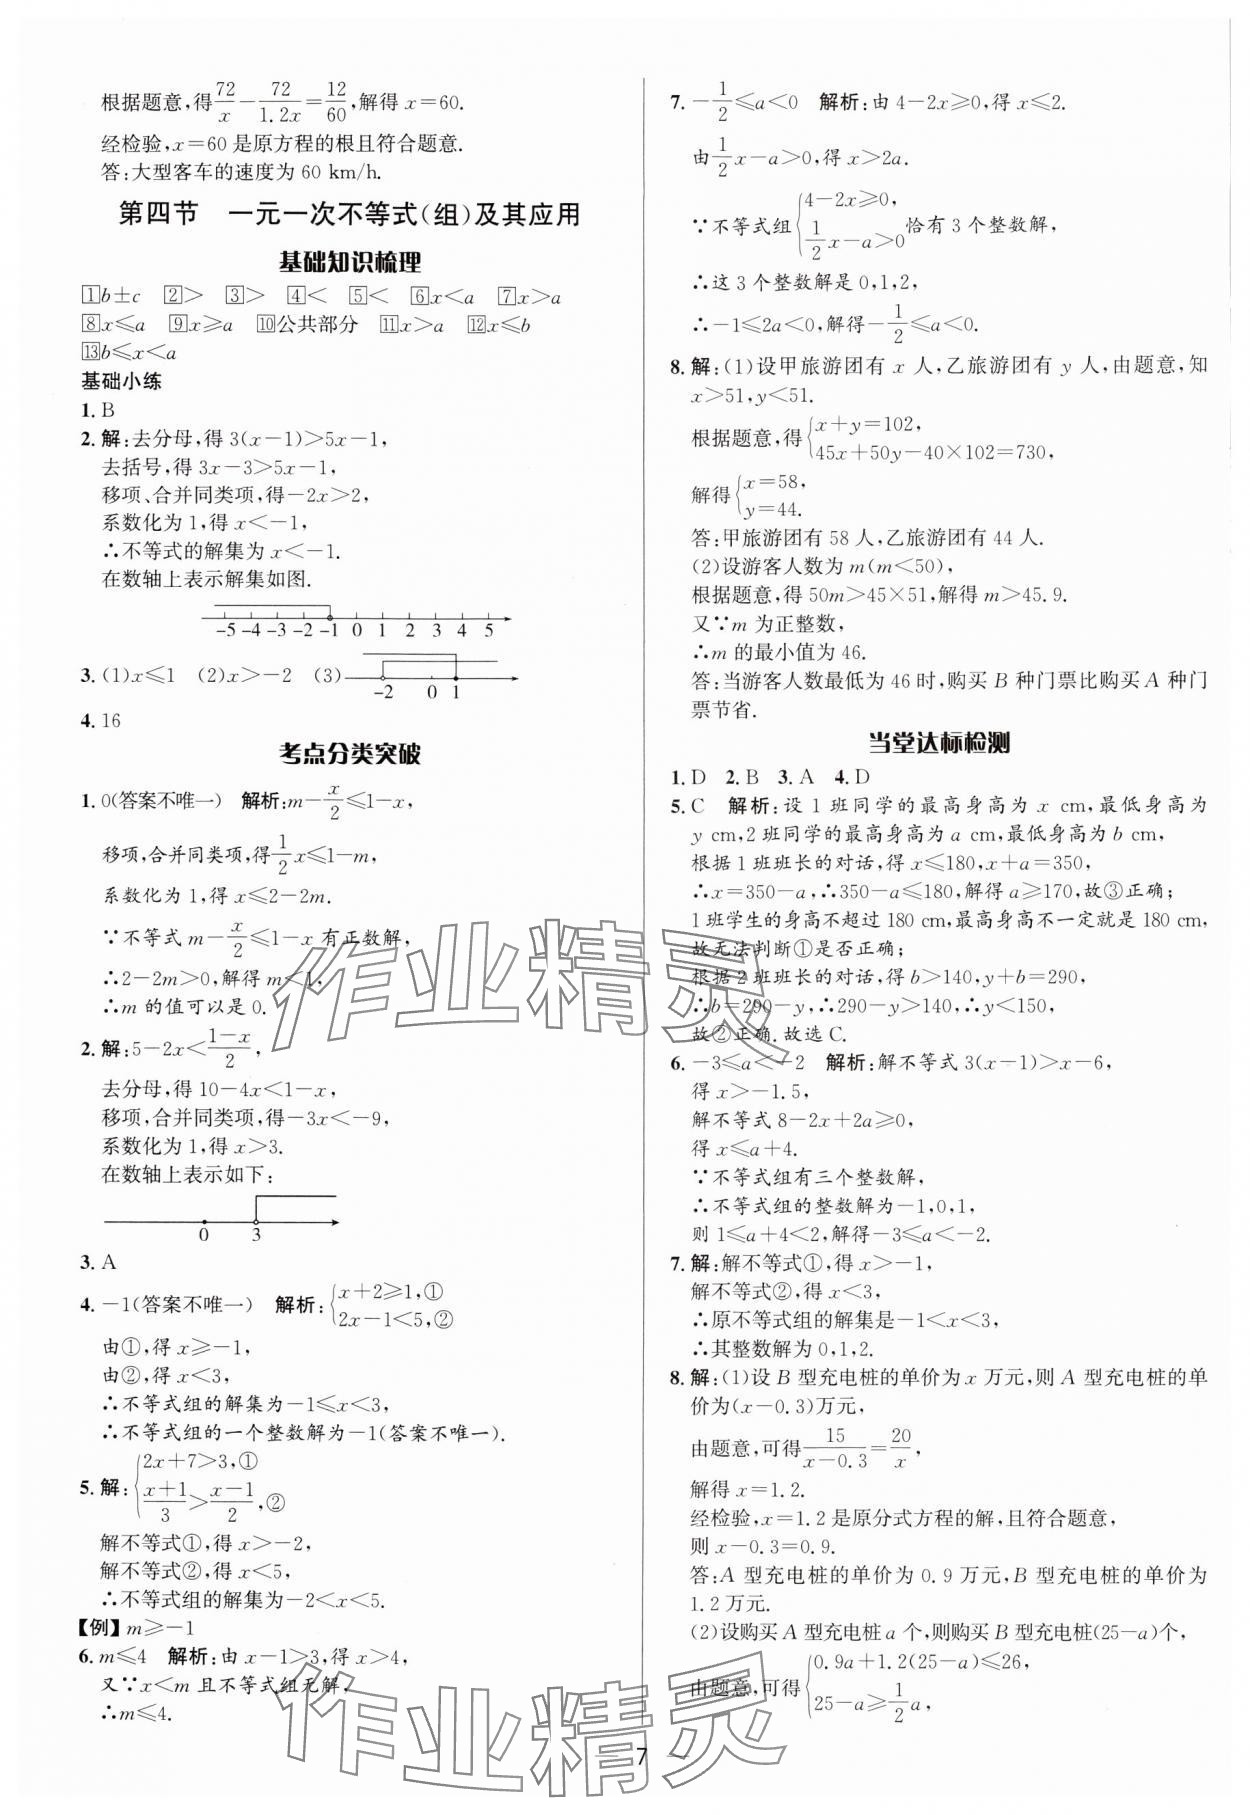 根据题意,得72/x-72/1.2x=12/60,解得x=60.
经检验,x=60是原方程的根且符合题意.
答:大型客车的速度为60 km/h.
第四节 一元一次不等式(组)及其应用
基础知识梳理
1 b±c 2 > 3 > 4 < 5 < 6 x<a 7 x>a
8 x≤a 9 x≥a 10 公共部分 11 x>a 12 x≤b
13 b≤x<a
基础小练
1. B
2. 解:去分母,得3(x-1)>5x-1,
去括号,得3x-3>5x-1,
移项、合并同类项,得-2x>2,
系数化为1,得x<-1,
∴不等式的解集为x<-1.
在数轴上表示解集如图.
-5 -4 -3 -2 -1 0 1 2 3 4 5
3. (1)x≤1 (2)x>-2 (3)
-2 0 1
4. 16
考点分类突破
1. 0(答案不唯一) 解析:m-x/2≤1-x,
移项,合并同类项,得1/2x≤1-m,
系数化为1,得x≤2-2m.
∵不等式m-x/2≤1-x有正数解,
∴2-2m>0,解得m<1,
∴m的值可以是0.
2. 解:5-2x<(1-x)/2,
去分母,得10-4x<1-x,
移项,合并同类项,得-3x<-9,
系数化为1,得x>3.
在数轴上表示如下:
0 3
3. A
4. -1(答案不唯一) 解析:{x+2≥1,① 2x-1<5,②
由①,得x≥-1,
由②,得x<3,
∴不等式组的解集为-1≤x<3,
∴不等式组的一个整数解为-1(答案不唯一).
5. 解:{2x+7>3,① (x+1)/3>(x-1)/2,②
解不等式①,得x>-2,
解不等式②,得x<5,
∴不等式组的解集为-2<x<5.
【例】m≥-1
6. m≤4 解析:由x-1>3,得x>4,
又∵x<m且不等式组无解,
∴m≤4.
7. -1/2≤a<0 解析:由4-2x≥0,得x≤2.
由1/2x-a>0,得x>2a.
∵不等式组{4-2x≥0, 1/2x-a>0 恰有3个整数解,
∴这3个整数解是0,1,2,
∴-1≤2a<0,解得-1/2≤a<0.
8. 解:(1)设甲旅游团有x人,乙旅游团有y人,由题意,知
x>51,y<51.
根据题意,得{x+y=102, 45x+50y-40×102=730,
解得{x=58, y=44.
答:甲旅游团有58人,乙旅游团有44人.
(2)设游客人数为m(m<50),
根据题意,得50m>45×51,解得m>45.9.
又∵m为正整数,
∴m的最小值为46.
答:当游客人数最低为46时,购买B种门票比购买A种门
票节省.
当堂达标检测
1. D 2. B 3. A 4. D
5. C 解析:设1班同学的最高身高为x cm,最低身高为
y cm,2班同学的最高身高为a cm,最低身高为b cm,
根据1班班长的对话,得x≤180,x+a=350,
∴x=350-a,∴350-a≤180,解得a≥170,故③正确;
1班学生的身高不超过180 cm,最高身高不一定就是180 cm,
故无法判断①是否正确;
根据2班班长的对话,得b>140,y+b=290,
∴b=290-y,∴290-y>140,∴y<150,
故②正确.故选C.
6. -3≤a<-2 解析:解不等式3(x-1)>x-6,
得x>-1.5,
解不等式8-2x+2a≥0,
得x≤a+4.
∵不等式组有三个整数解,
∴不等式组的整数解为-1,0,1,
则1≤a+4<2,解得-3≤a<-2.
7. 解:解不等式①,得x>-1,
解不等式②,得x<3,
∴原不等式组的解集是-1<x<3,
∴其整数解为0,1,2.
8. 解:(1)设B型充电桩的单价为x万元,则A型充电桩的单
价为(x-0.3)万元,
由题意,可得15/(x-0.3)=20/x,
解得x=1.2.
经检验,x=1.2是原分式方程的解,且符合题意,
则x-0.3=0.9.
答:A型充电桩的单价为0.9万元,B型充电桩的单价为
1.2万元.
(2)设购买A型充电桩a个,则购买B型充电桩(25-a)个,
由题意,可得{0.9a+1.2(25-a)≤26, 25-a≥1/2a,
7
作业精灵
作业精灵